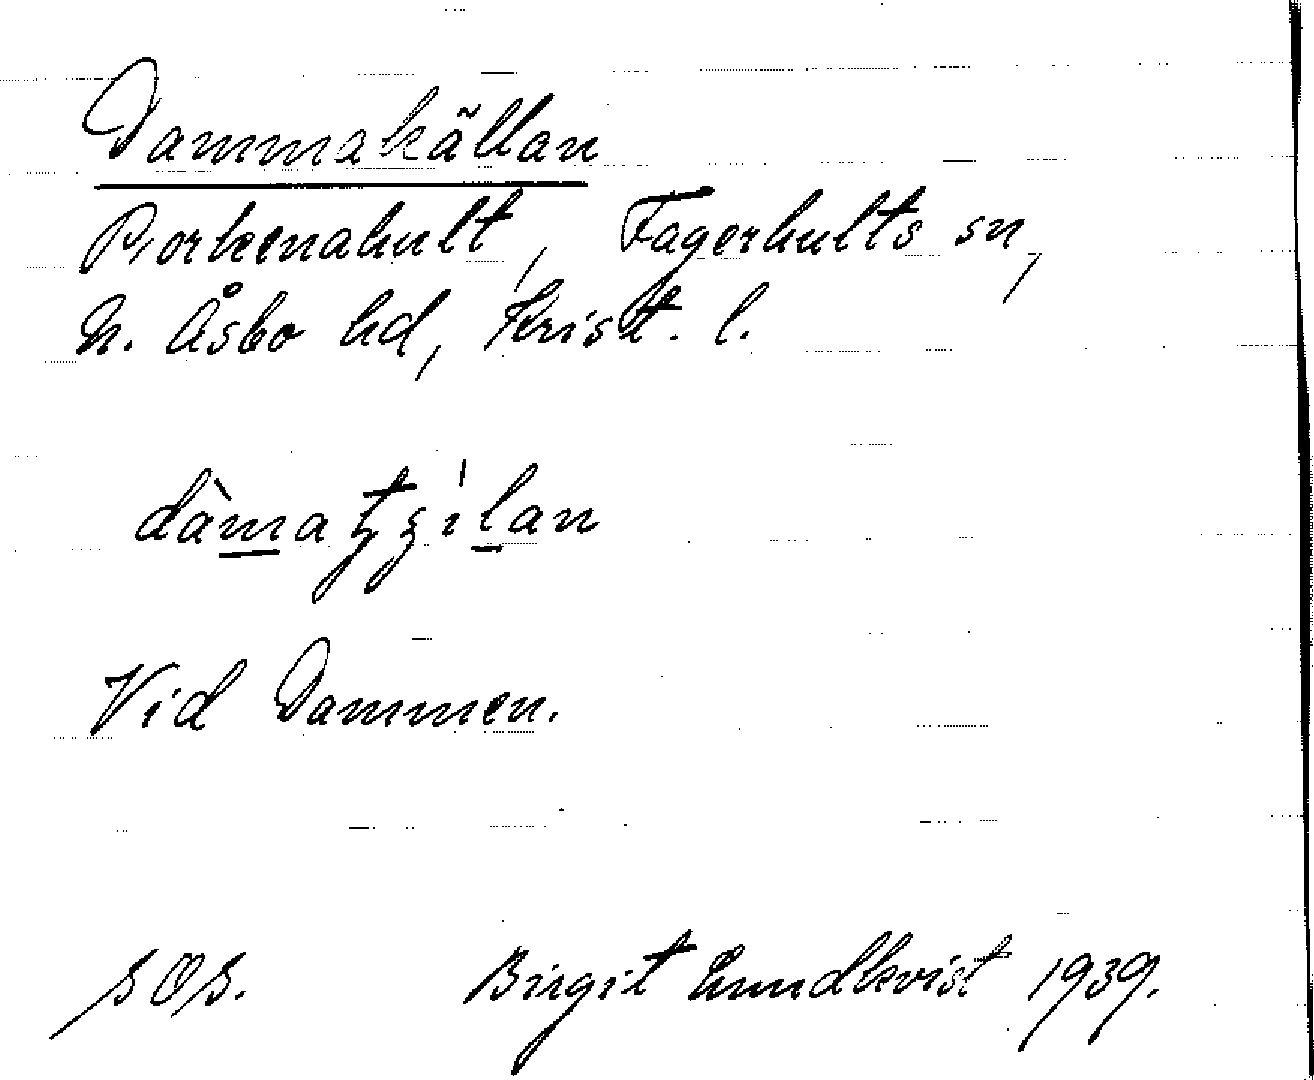 Dammakällan
Porkenahult, Fagerhults sn,
N. Åsbo hd, Krist. l.
Vid Dammen.
s O s.
Birgit Lundkvist 1939.